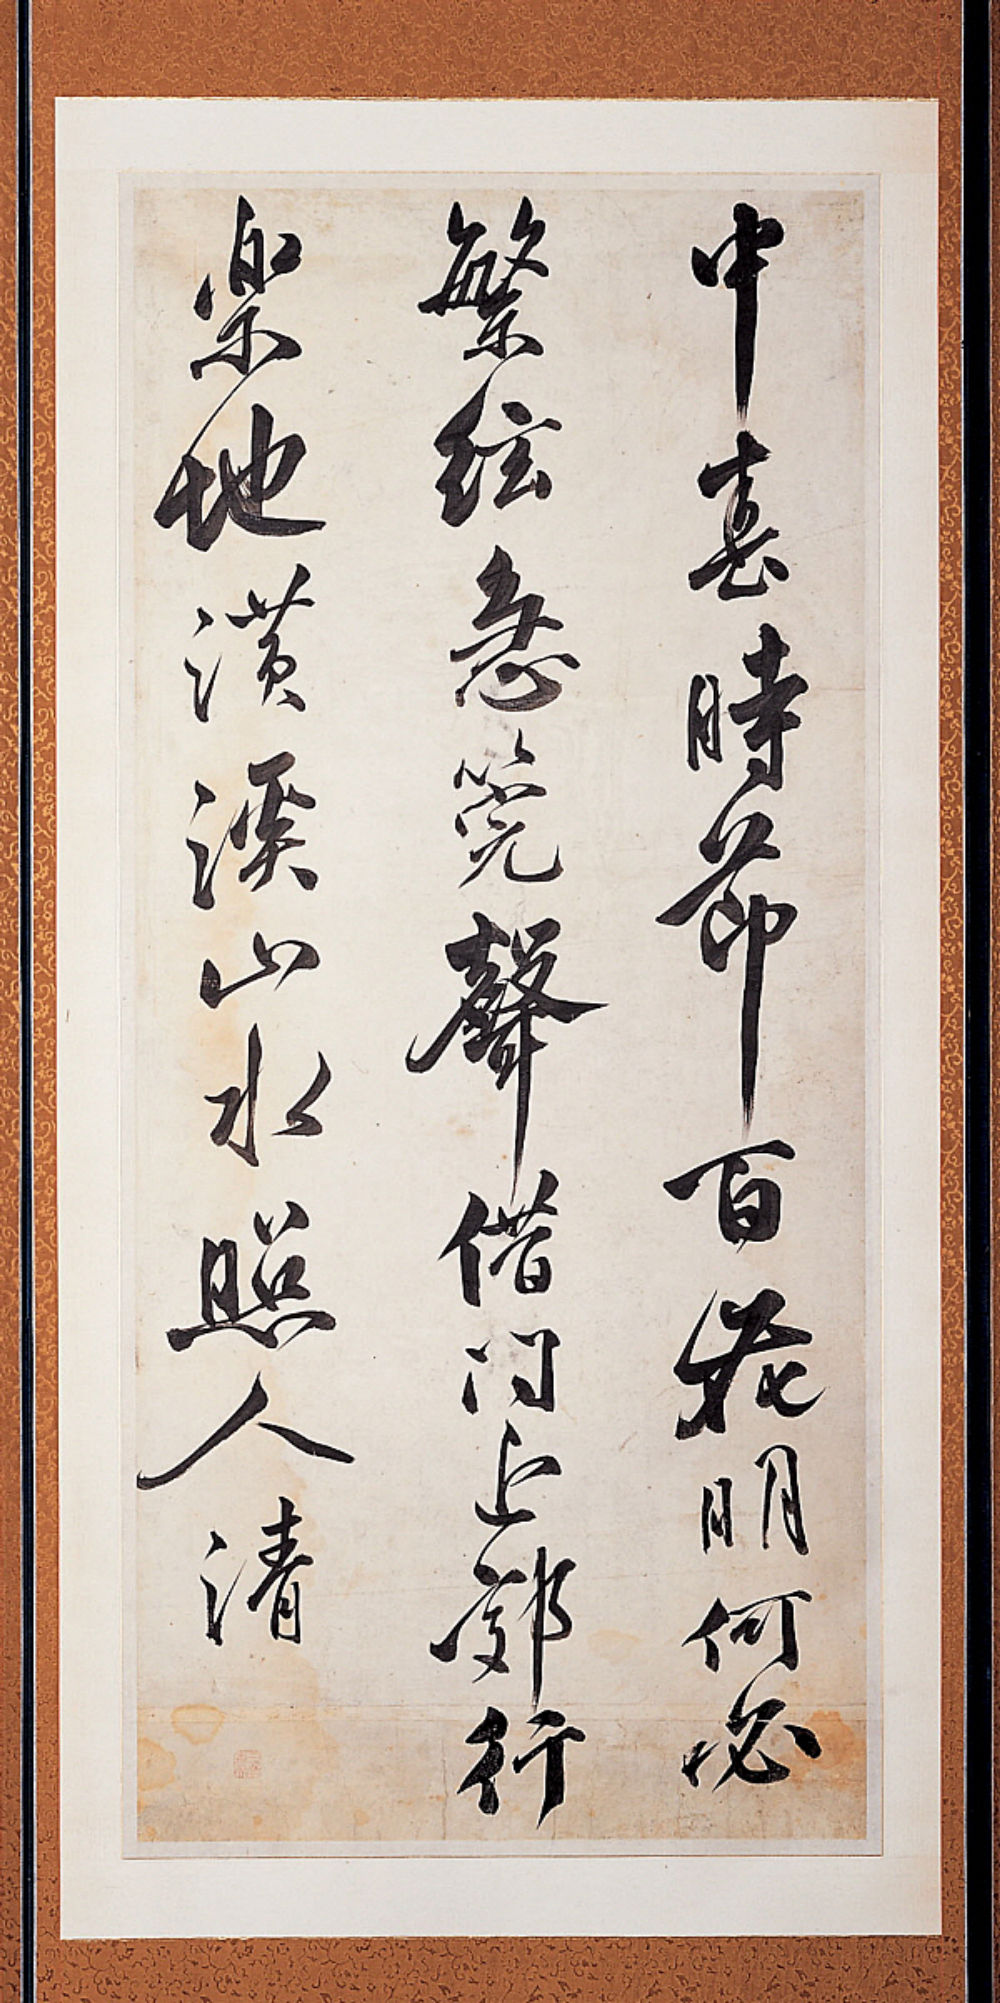 中春時節百花明何必
繁絃急筦聲借問近郊行
楽地潢溪山水照人清